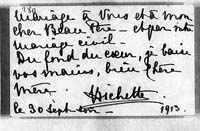 mariage à Vous et à mon
cher Beau Père — et par votre
mariage civil.
Du fond du cœur, je baise
vos mains, bien chère
mère.
le 30 Sept. 1913.